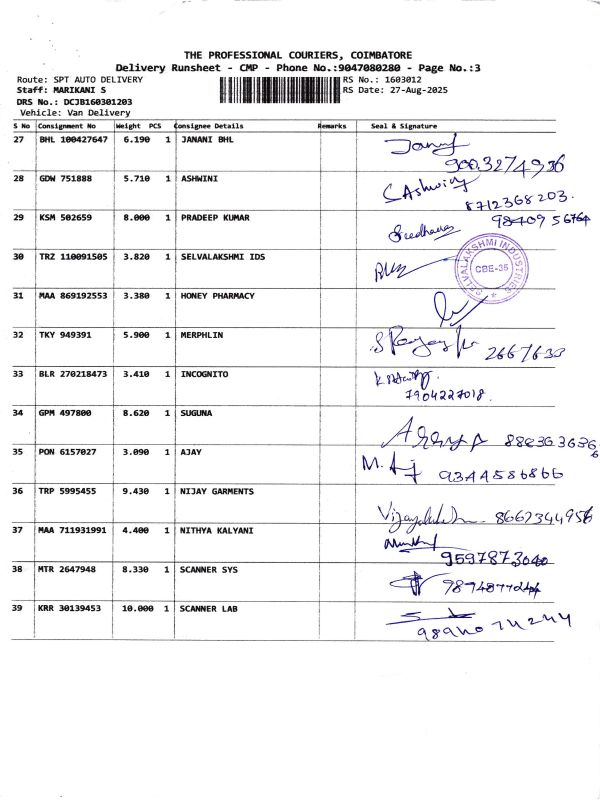 THE PROFESSIONAL COURIERS, COIMBATORE
Delivery Runsheet - CMP - Phone No.:9047080280 - Page No.:3
Route: SPT AUTO DELIVERY RS No.: 1603012
Staff: MARIKANI S RS Date: 27-Aug-2025
DRS No.: DCJB160301203
Vehicle: Van Delivery
S No Consignment No Weight PCS Consignee Details Remarks Seal & Signature
27 BHL 100427647 6.190 1 JANANI BHL
9003274936
28 GDW 751888 5.710 1 ASHWINI S Ashwiny
8712368203.
29 KSM 502659 8.000 1 PRADEEP KUMAR 9840956764
Sreedharan
30 TRZ 110091505 3.820 1 SELVALAKSHMI IDS SELVALAKSHMI INDUSTRIES CBE-35
31 MAA 869192553 3.380 1 HONEY PHARMACY
32 TKY 949391 5.900 1 MERPHLIN
2667633
33 BLR 270218473 3.410 1 INCOGNITO
7904227018.
34 GPM 497800 8.620 1 SUGUNA
35 PON 6157027 3.090 1 AJAY M.
9344586866
36 TRP 5995455 9.430 1 NIJAY GARMENTS
8667344956
37 MAA 711931991 4.400 1 NITHYA KALYANI
9597873040
38 MTR 2647948 8.330 1 SCANNER SYS
39 KRR 30139453 10.000 1 SCANNER LAB